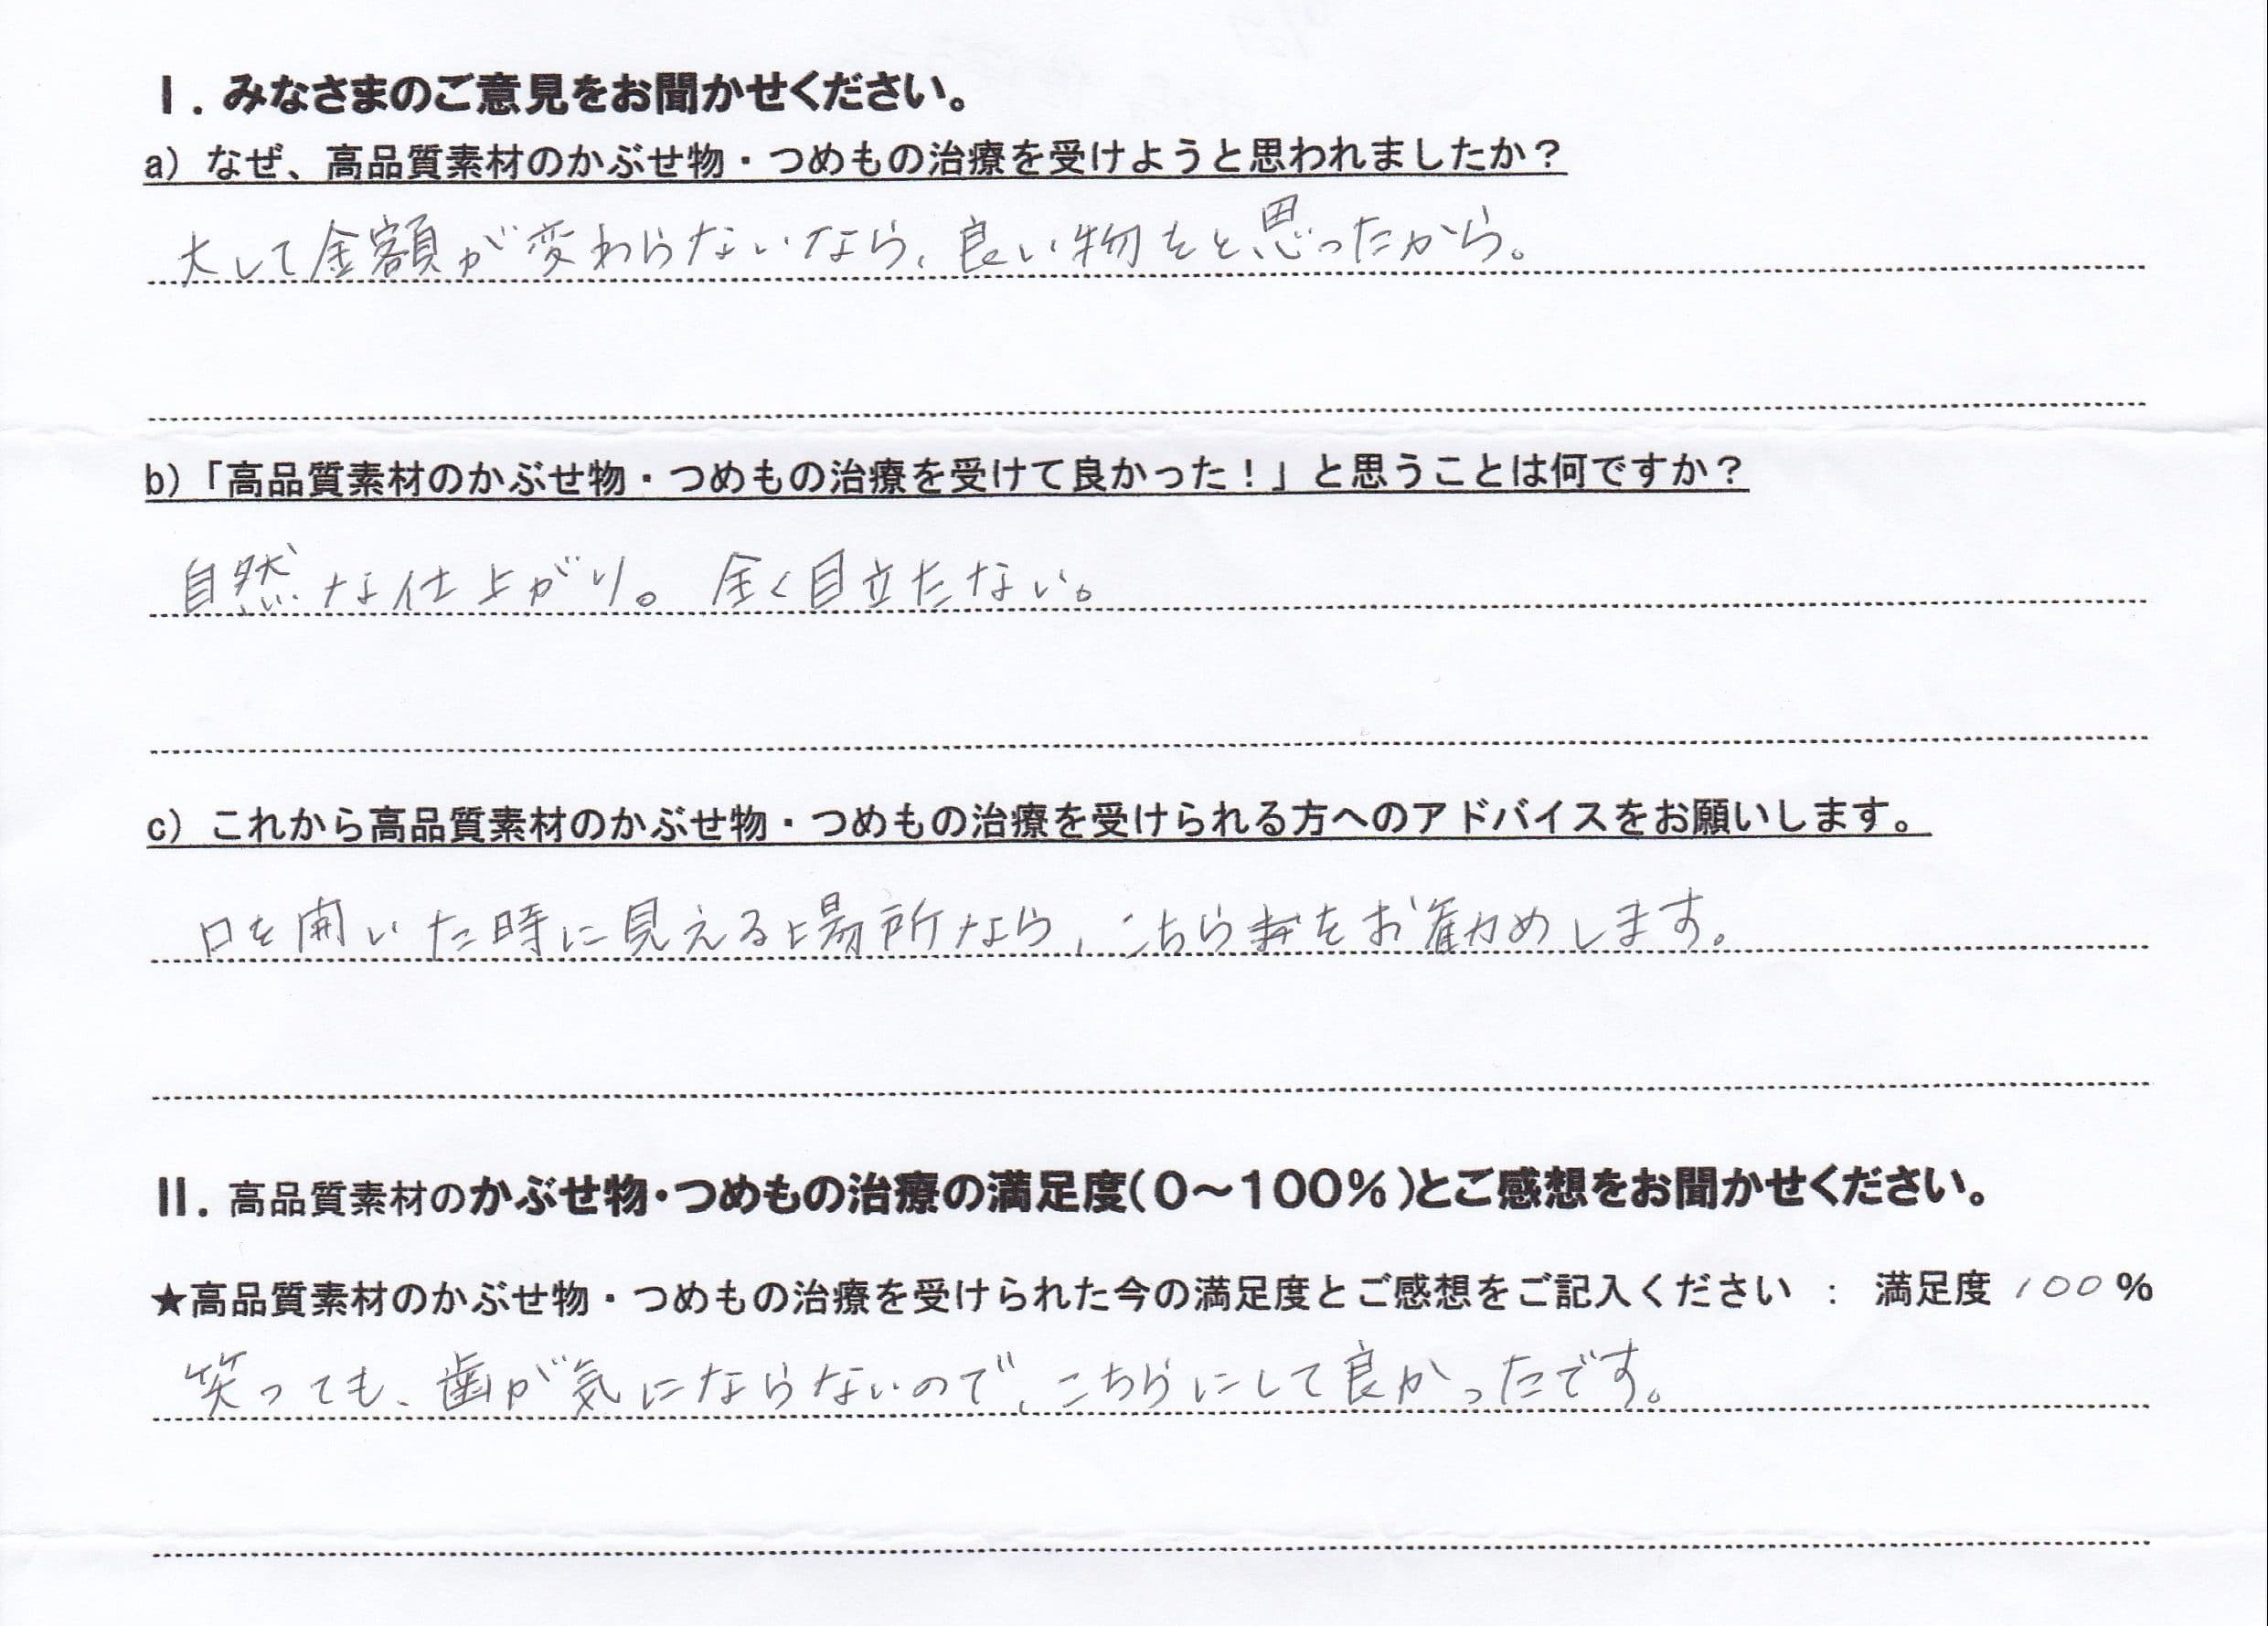 I. みなさまのご意見をお聞かせください。
a) なぜ、高品質素材のかぶせ物・つめもの治療を受けようと思われましたか？
大して金額が変わらないなら、良い物をと思ったから。
b)「高品質素材のかぶせ物・つめもの治療を受けて良かった！」と思うことは何ですか？
自然な仕上がり。全く目立たない。
c) これから高品質素材のかぶせ物・つめもの治療を受けられる方へのアドバイスをお願いします。
口を開いた時に見える場所なら、こちらをお勧めします。
II. 高品質素材のかぶせ物・つめもの治療の満足度(０～１００％)とご感想をお聞かせください。
★高品質素材のかぶせ物・つめもの治療を受けられた今の満足度とご感想をご記入ください ： 満足度 100 %
笑っても、歯が気にならないので、こちらにして良かったです。